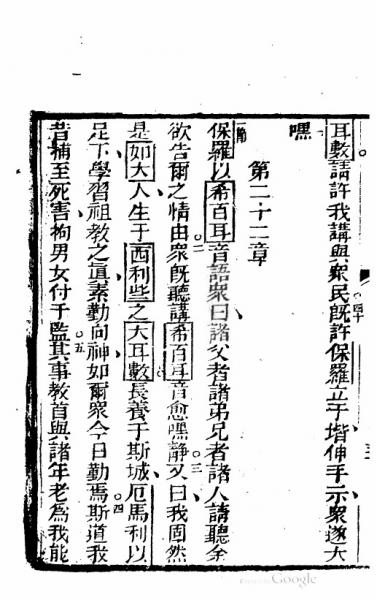 耳數請許我講與眾民既許保羅立于堦伸手示眾遂大
四十
嘿
第二十二章
一節
保羅以希百耳音語眾曰諸父者諸弟兄者諸人請聽余
欲告爾之情由眾既聽講希百耳音愈嘿靜又曰我固然
二
三
是如大人生于西利些之大耳數長養于斯城厄馬利以
四
足下學習祖教之真素勤向神如爾眾今日勤焉斯道我
五
昔補至死害拘男女付于監其事教首與諸年老為我能
Google